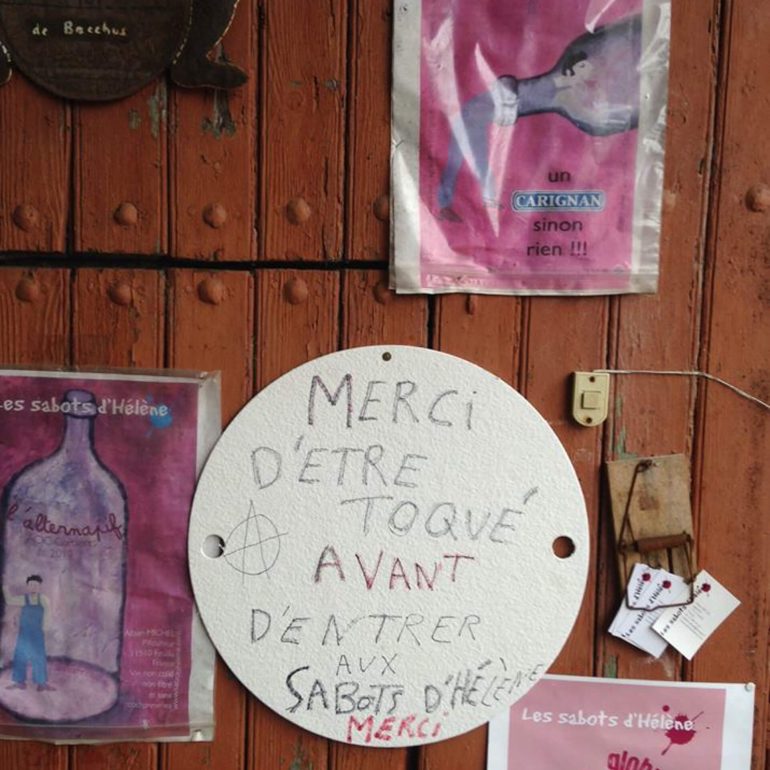 de Bacchus
un
CARIGNAN
sinon
rien !!!
Les sabots d'Hélène
l'alternapif
MERCi
D'ETRE
TOQUÉ
AVANT
D'ENTRER
AUX
SABOTS D'HÉLÈNE
MERCi
Alban MICHEL
Les sabots d'Hélène
Les sabots d'Hélène